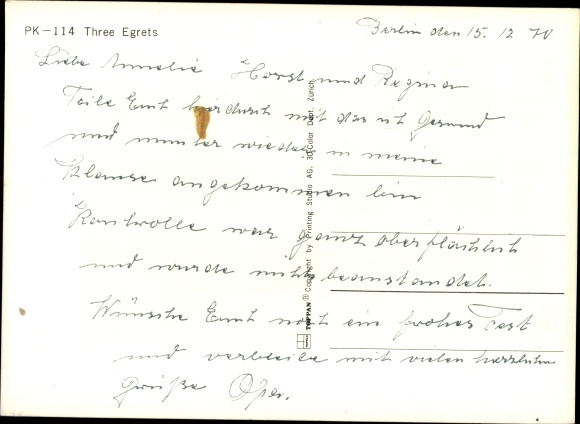 PK-114 Three Egrets
Berlin den 15. 12 70
Liebe Annelie Horst und Regina
Teile Euch hierdurch mit das ich Gesund
und munter wieder in meine
Klause angekommen bin
Kontrolle war ganz oberflächlich
und wurde nichts beanstandet.
Wünsche Euch noch ein frohes Fest
und verbleibe mit vielen herzlichen
Grüße Opa.
TOPPAN ® Copyright by Printing Studio AG, 3D-Color Dept. Zürich